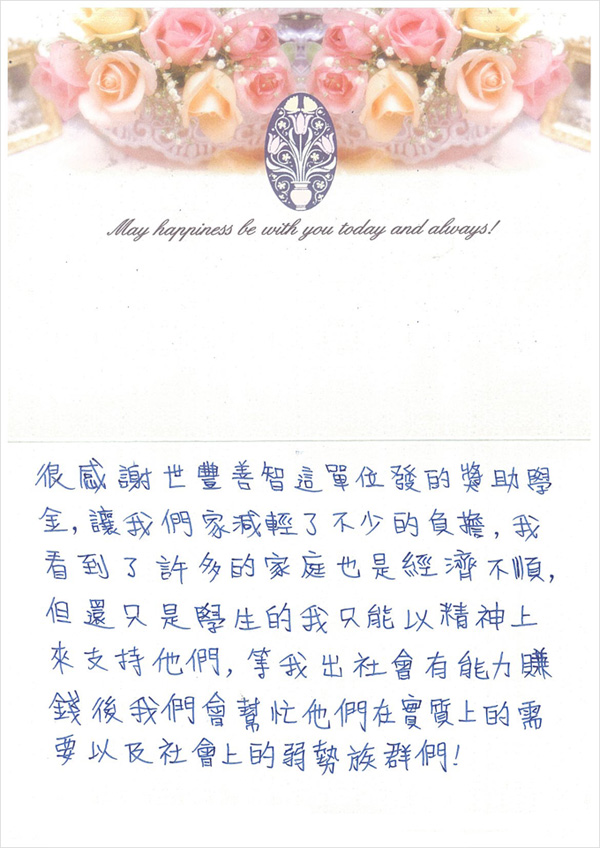 May happiness be with you today and always!
很感謝世豐善智這單位發的獎助學
金,讓我們家減輕了不少的負擔,我
看到了許多的家庭也是經濟不順,
但還只是學生的我只能以精神上
來支持他們,等我出社會有能力賺
錢後我們會幫忙他們在實質上的需
要以及社會上的弱勢族群們!